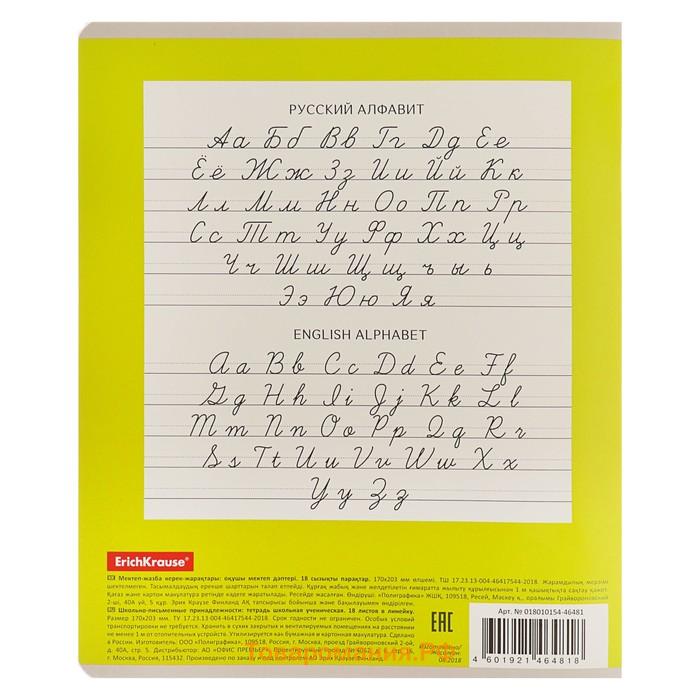 РУССКИЙ АЛФАВИТ
Аа Бб Вв Гг Дд Ее
Ёё Жж Зз Ии Йй Кк
Лл Мм Нн Оо Пп Рр
Сс Тт Уу Фф Хх Цц
Чч Шш Щщ ъ ы ь
Ээ Юю Яя
ENGLISH ALPHABET
Aa Bb Cc Dd Ee Ff
Gg Hh Ii Jj Kk Ll
Mm Nn Oo Pp Qq Rr
Ss Tt Uu Vv Ww Xx
Yy Zz
ErichKrause®
Мектеп-жазба керек-жарақтары: оқушы мектеп дәптері. 18 сызықты парақтар. 170х203 мм өлшемі. ТШ 17.23.13-004-46417544-2018. Жарамдылық мерзімі
шектелмеген. Тасымалдаудың ерекше шарттарын талап етпейді. Құрғақ жабық және желдетілетін ғимаратта жылыту құрылғысынан 1 м қашықтықта сақтау қажет.
Қағаз және картон макулатура ретінде кәдеге жаратылады. Ресейде жасалған. Өндіруші: «Полиграфика» ЖШҚ, 109518, Ресей, Мәскеу қ., Грайвороновский
2-ші, 40А үй, 5 құр.
Школьно-письменные принадлежности: тетрадь школьная ученическая. 18 листов в линейку.
Размер 170х203 мм. ТУ 17.23.13-004-46417544-2018. Срок годности не ограничен. Особых условий
транспортировки не требуется. Хранить в сухих закрытых и вентилируемых помещениях на расстоянии
не менее 1 м от отопительных устройств. Утилизируется как бумажная и картонная макулатура. Сделано
в России. Изготовитель: ООО «Полиграфика», 109518, Россия, г. Москва, проезд Грайвороновский 2-ой,
д. 40А, стр. 5. Дистрибьютор: АО «ОФИС ПРЕМЬЕР»
г. Москва, Россия, 115432. Произведено по заказу и под контролем Эрик Краузе Финланд
EAC
Изготовлено/
Жасалған:
08.2018
Арт. № 018010154-46481
4 601921 464818
Товаромания.РФ